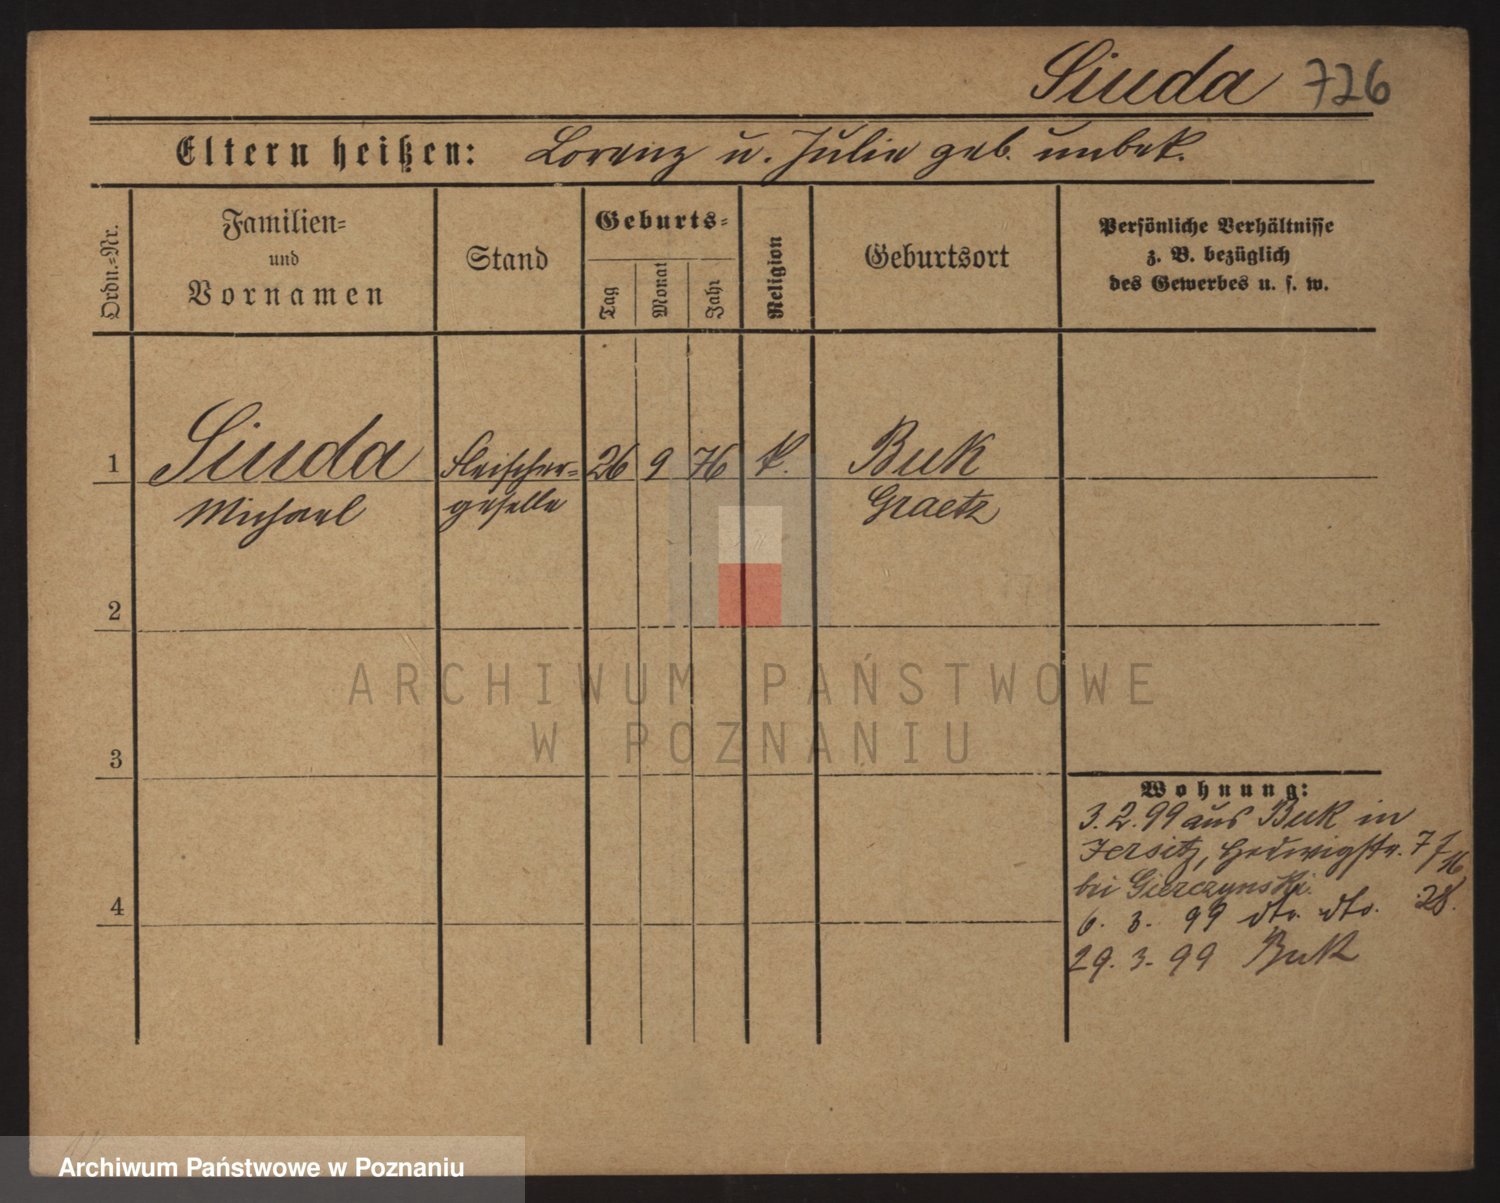 Siuda 726
Eltern heißen: Lorenz u. Julie geb. unbek.
Ordn.-Nr.
Familien-
und
Vornamen
Stand
Geburts-
Tag
Monat
Jahr
Religion
Geburtsort
Persönliche Verhältnisse
z. B. bezüglich
des Gewerbes u. s. w.
1 Siuda Fleischer- 26 9 76 k. Buk
Michael geselle Graetz
2
3
4
ARCHIWUM PAŃSTWOWE
W POZNANIU
Wohnung:
3. 2. 99 aus Buk in
Jersitz, Hedwigstr. 7
bei Gierczynski.
6. 3. 99 dto. dto. 28.
29. 3. 99 Buk
Archiwum Państwowe w Poznaniu